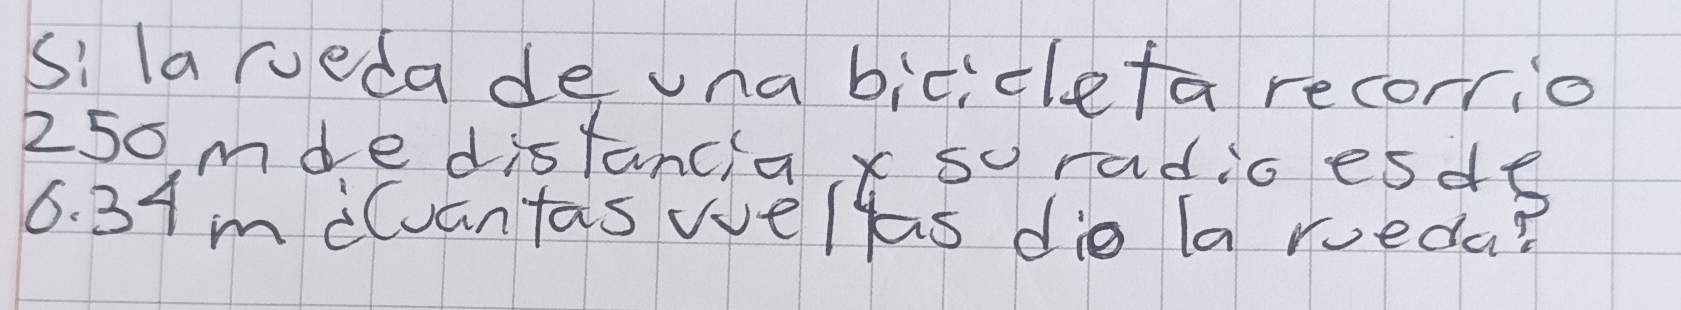 Si la rueda de una bicicleta recorrio
250 m de distancia y su radio es de
0.34 m ¿Cuantas vueltas dio la rueda?